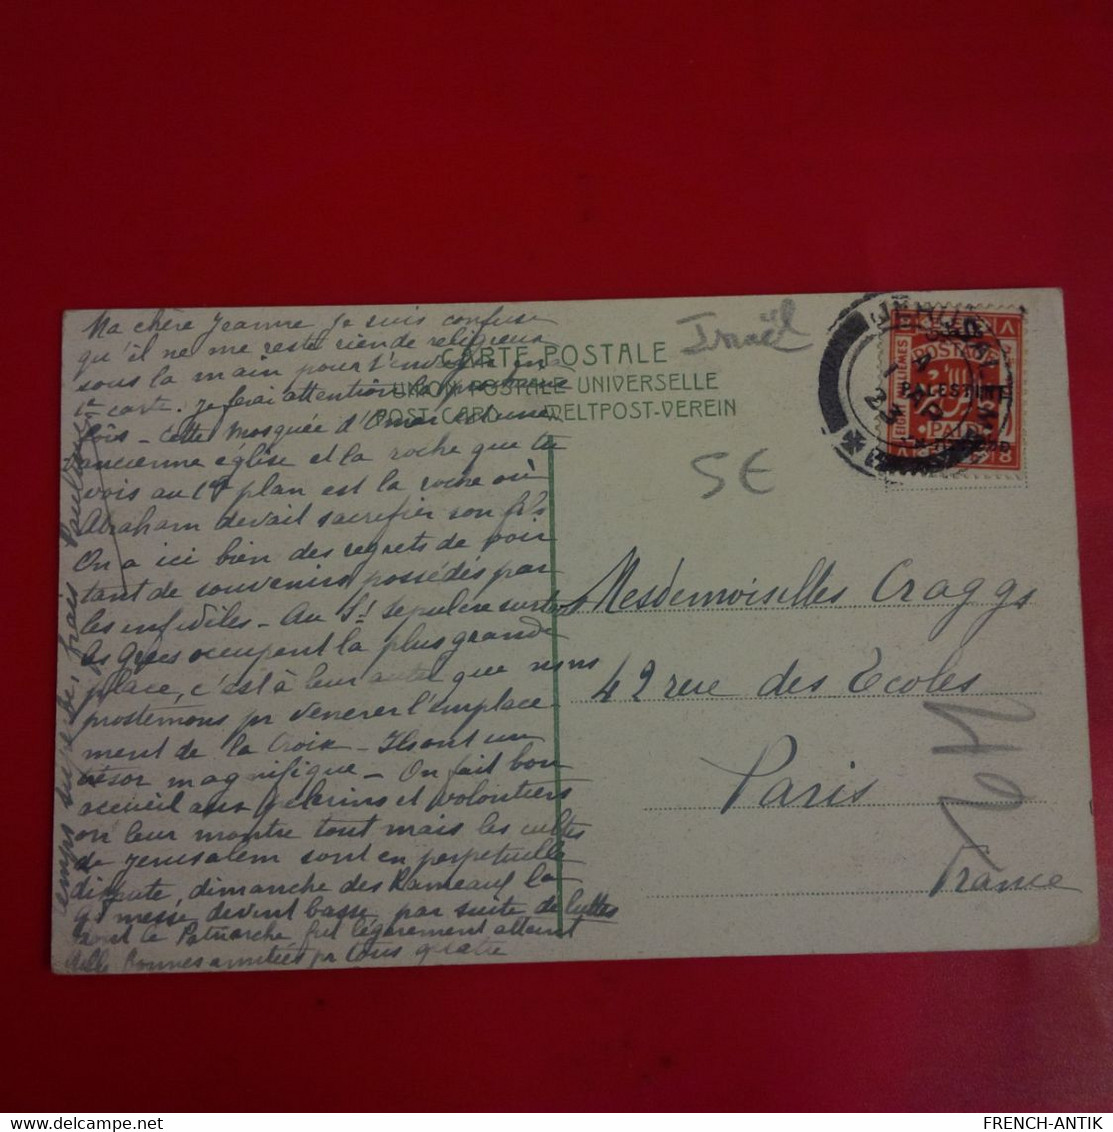 Ma chère Jeanne je suis confuse
qu'il ne me reste rien de religieux
sous la main pour l'envoi d'une
1e carte. Je ferai attention la
fois – Cette mosquée d'Omar est une
ancienne église et la roche que tu
vois au 1er plan est la roche où
Abraham devait sacrifier son fils
On a ici bien des regrets de voir
tant de souvenirs possédés par
les infidèles – Au St Sépulcre surtout
les Grecs occupent la plus grande
place, c'est à leur autel que nous
prosternons pr vénérer l'emplace-
ment de la Croix – Ils ont un
trésor magnifique – On fait bon
accueil aux pèlerins et volontiers
on leur montre tout mais les cultes
de Jérusalem sont en perpetuelle
dispute, dimanche des Rameaux la
gd messe devint basse par suite de luttes
dont le Patriarche fut légèrement atteint
Mille bonnes amitiés pr tous quatre
temps superbe, frais Pauline
CARTE POSTALE
UNION POSTALE UNIVERSELLE
POST-CARD WELTPOST-VEREIN
Israël
5€
JERUSALEM
PALESTINE
POSTAGE
PAID
EIGHT MILLIEMES
8
Mesdemoiselles Craggs
42 rue des Ecoles
Paris
France
FRENCH-ANTIK